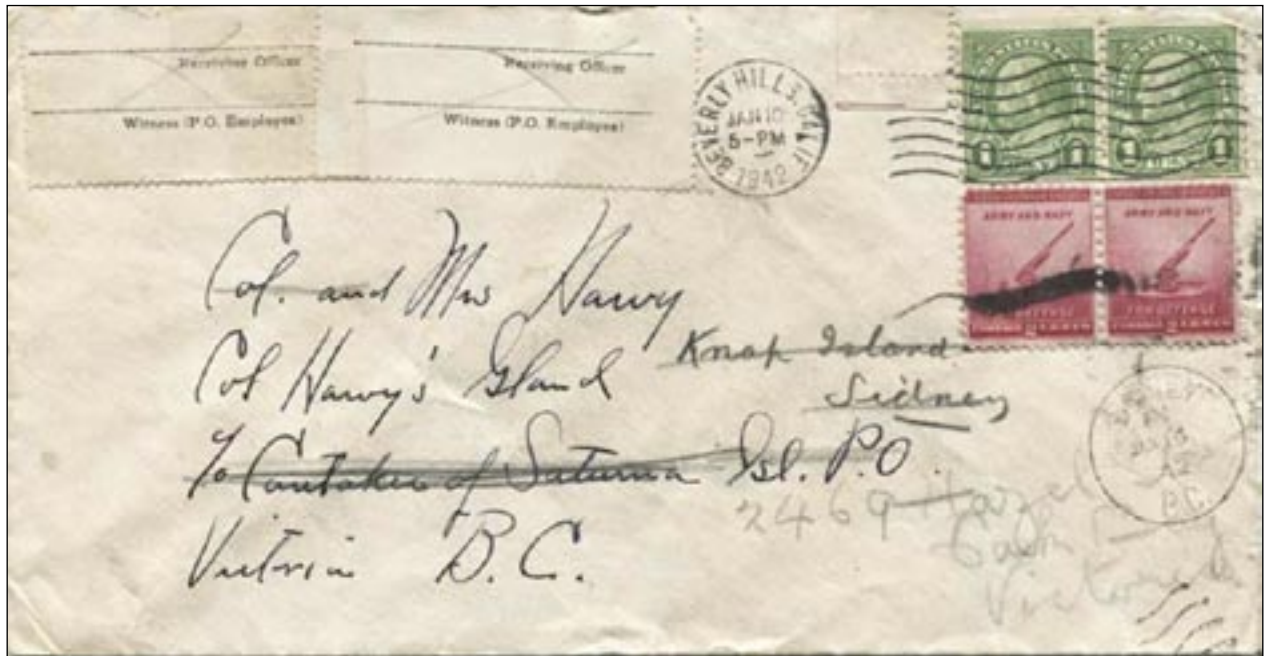 Receiving Officer
Witness (P.O. Employee)
Receiving Officer
Witness (P.O. Employee)
BEVERLY HILLS, CALIF.
JAN 10
5-PM
1942
1 1
1 1
ARMY AND NAVY
ARMY AND NAVY
FOR DEFENSE
Col. and Mrs Harvy
Col Harvy's Island
Knap Island
Sidney
c/o Caretaker of Saturna Isl. P.O.
Victoria B.C.
2469
Victoria
SIDNEY
B.C.